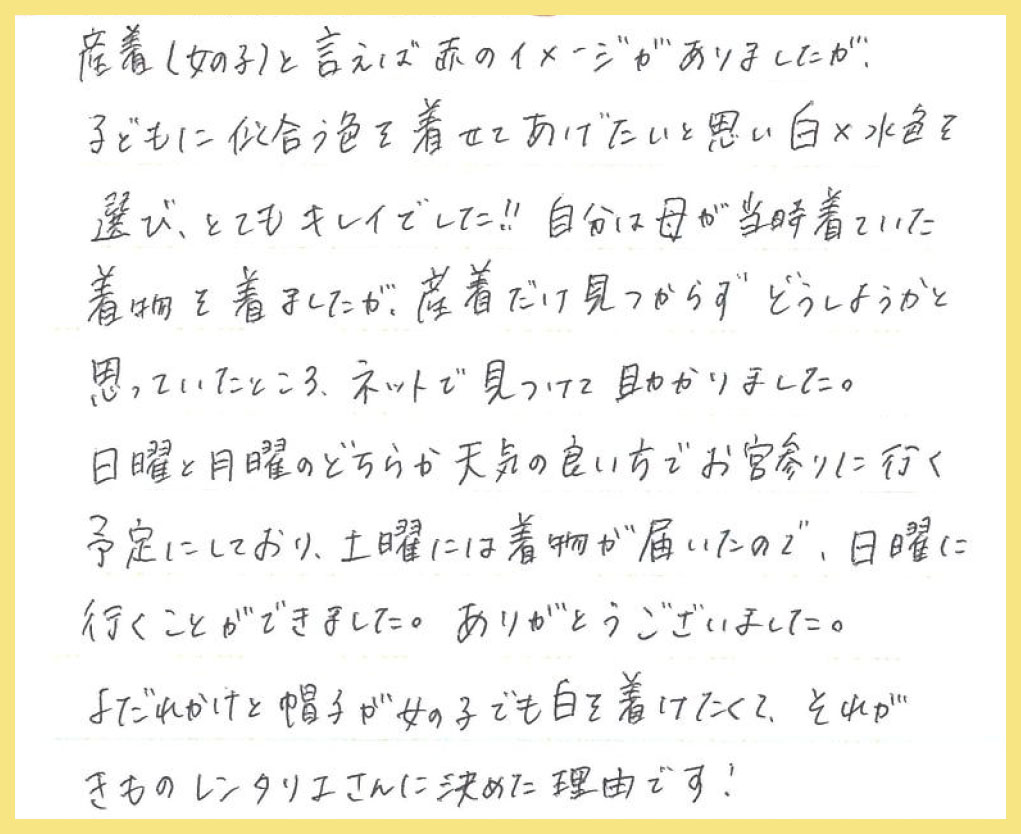 産着(女の子)と言えば赤のイメージがありましたが、
子どもに似合う色を着せてあげたいと思い白×水色を
選び、とてもキレイでした!! 自分は母が当時着ていた
着物を着ましたが、産着だけ見つからずどうしようかと
思っていたところ、ネットで見つけて助かりました。
日曜と月曜のどちらか天気の良い方でお宮参りに行く
予定にしており、土曜には着物が届いたので、日曜に
行くことができました。ありがとうございました。
よだれかけと帽子が女の子でも白を着けたくて、それが
きものレンタリエさんに決めた理由です!